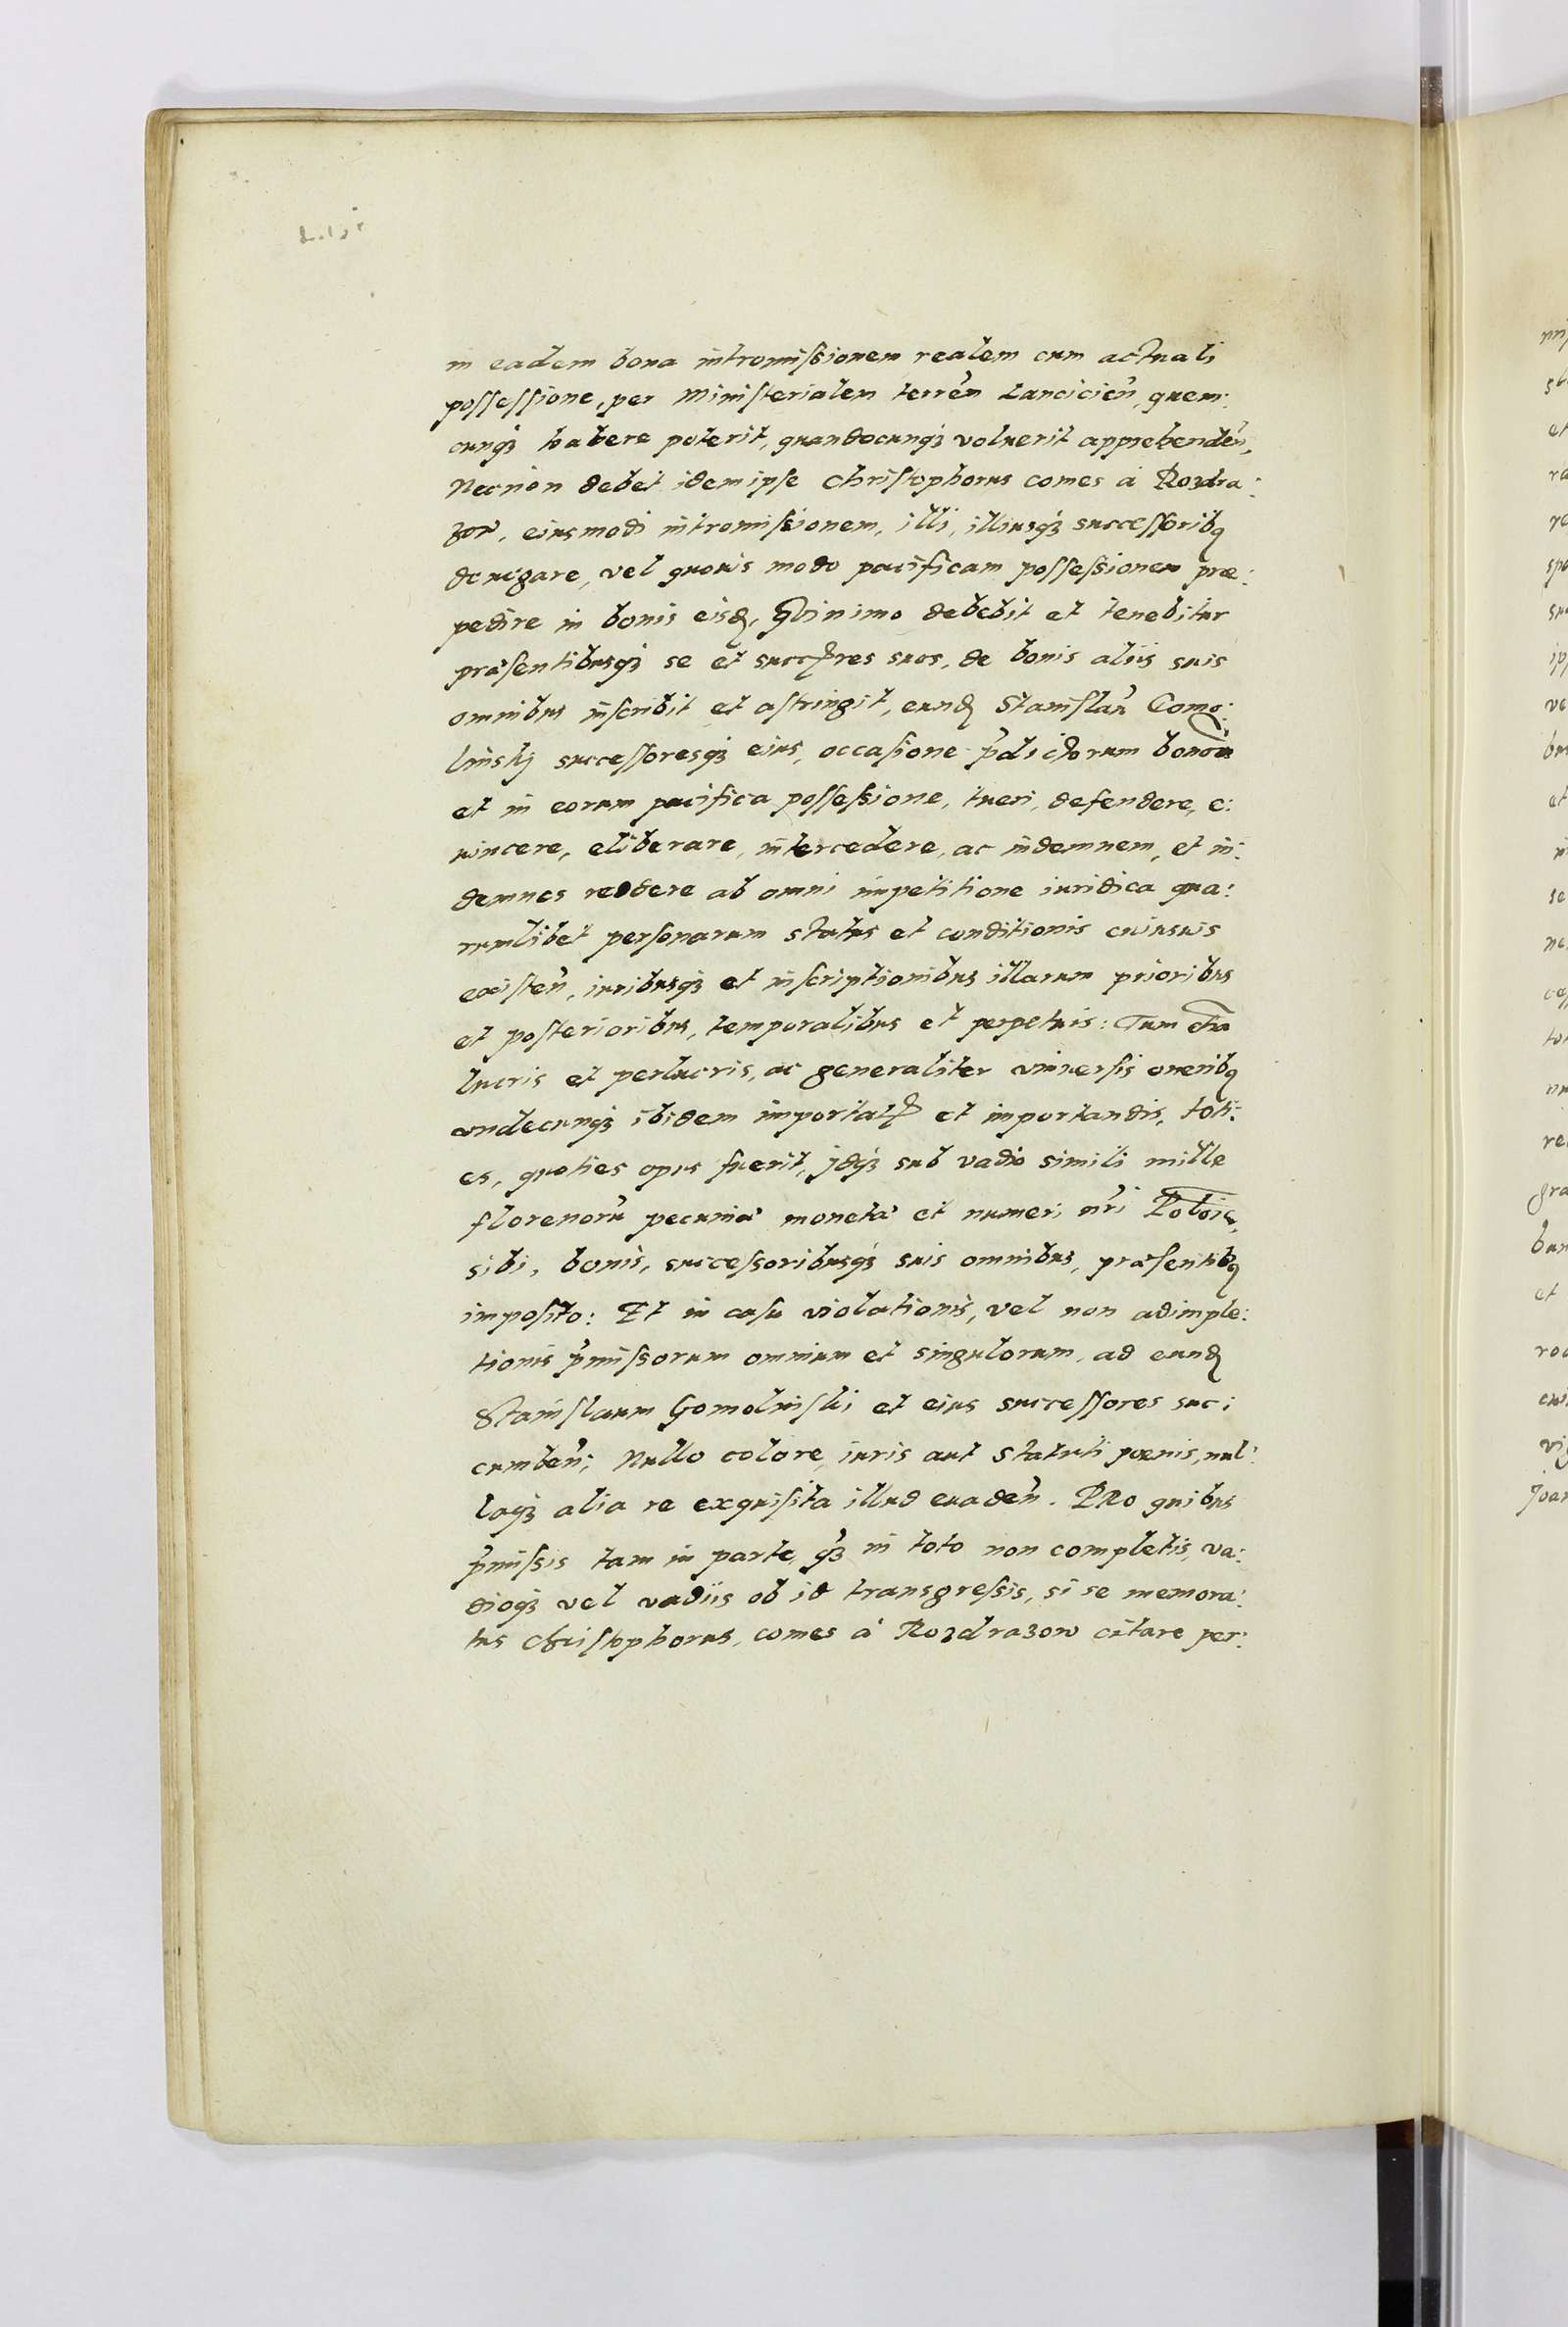 in eadem bona intromiſsionem realem cum actuali
poſſeſſione, per Miniſterialem terreñ Lancicień, quem:
cunq́ꝫ habere poterit, quandocunq́ꝫ voluerit apprehendeñ,
Necnon debet idem ipſe Chriſtophorus comes à Rozdra:
żow, eiusmodi intromiſsionem, illi, illiusq́ꝫ succeſſoribꝰ
denegare, vel quouis modo pacificam poſſeſsionem præ:
pedire in bonis eisdꝫ, Quinimo debebit et tenebitur
præſentibusq́ꝫ se et succꝭres suos, de bonis aliis suis
omnibus inſcribit et aſtringit, eundꝫ Staniſlau̅ Gomo:
linsky succeſſoresq́ꝫ eius, occaſione p̃dictorum bonoru̅
et in eorum pacifica poſſeſsione, tueri, defendere, e:
uincere, eliberare, intercedere, ac indemnem, et in:
demnes reddere ab omni impetitione iuridica qua:
rumlibet perſonarum status et conditionis cuiusuis
exiſteñ, iuribusq́ꝫ et inſcriptionibus illarum prioribus
et poſterioribus, temporalibus et perpetuis: Tum etia̅
lucris et perlucris, ac generaliter vniuerſis oneribꝰ
vndecunq́ꝫ ibidem importatꝭ et importandis, toti:
es, quoties opus fuerit, jdq́ꝫ sub vadio simili mille
florenoru̅ pecuniæ monetæ et numeri nr̃i Polonic̅,
sibi, bonis, succeſsoribusq́ꝫ suis omnibus, præſentibꝰ
impoſito: Et in caſu violationis, vel non adimple:
tionis p̃miſsorum omnium et singulorum, ad eundꝫ
Staniſlaum Gomolinſki et eius succeſſores suc:
cumbeñ; Nullo colore, iuris aut Statuti pœnis, nul:
laq́ꝫ alia re exquiſita illud euadeñ. PRo quibus
p̃miſsis tam in parte, q̃ꝫ in toto non completis, va:
dioq́ꝫ vel vadiis ob id transgreſsis, si se memora:
tus Chriſtophorus, comes à Rozdrazow citare per: